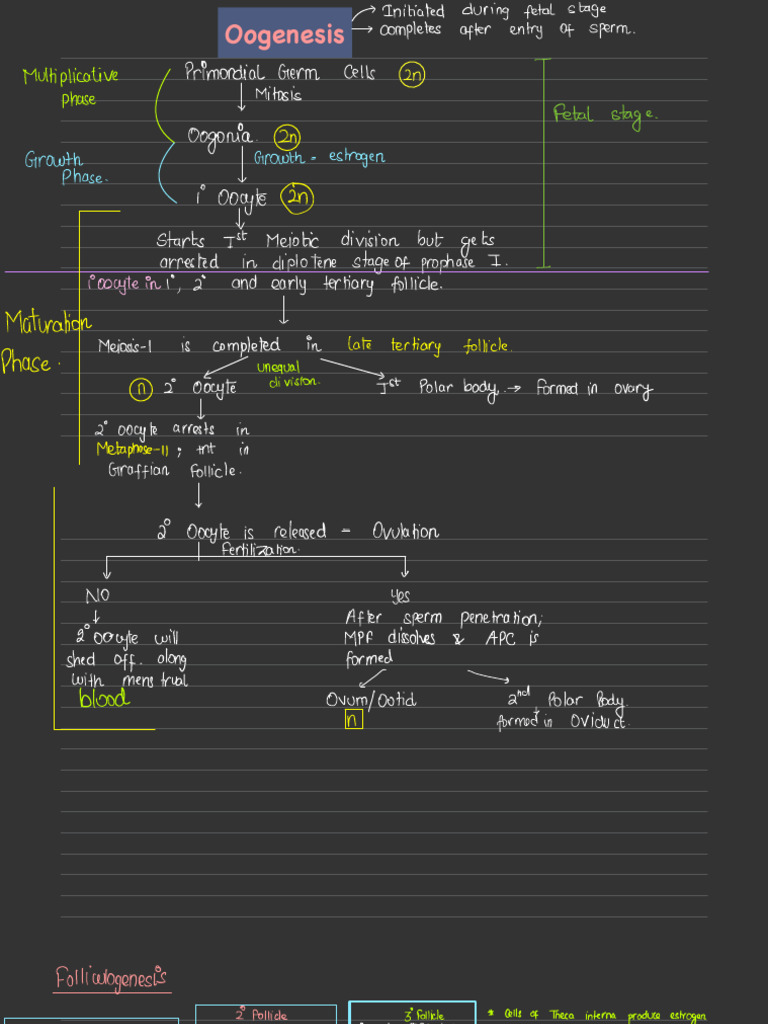 Oogenesis
→ Initiated during fetal stage
→ Completes after entry of sperm.
Multiplicative phase
Primordial Germ Cells 2n
↓ Mitosis
Fetal stage.
Oogonia. 2n
Growth Phase.
↓ Growth - estrogen
1° Oocyte 2n
Starts Ist Meiotic division but gets
arrested in diplotene stage of prophase I.
1° oocyte in 1°, 2° and early tertiary follicle.
Maturation Phase.
Meiosis-I is completed in late tertiary follicle.
unequal division.
n 2° Oocyte
Ist Polar body → formed in ovary
2° oocyte arrests in
Metaphase-II ; tnt in
Graffian follicle.
2° Oocyte is released = Ovulation
Fertilization.
NO
Yes
2° Oocyte will
shed off. along
with menstrual
blood
After sperm penetration;
MPF dissolves & APC is
formed
Ovum/Ootid
n
2nd Polar Body
formed in Oviduct.
Folliculogenesis
2° Follicle
3° Follicle
* Cells of Theca interna produce estrogen